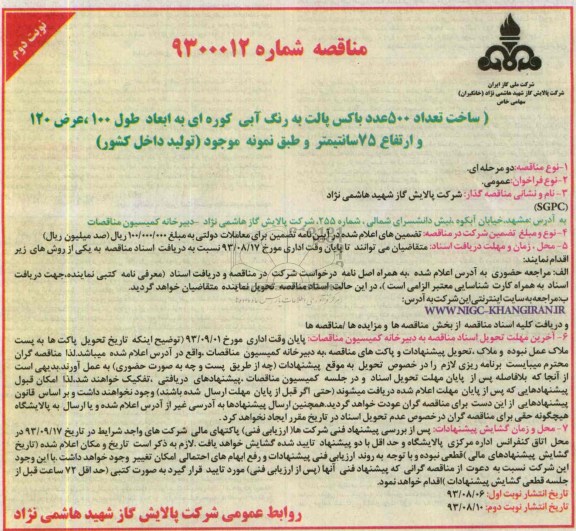 نوبت دوم
مناقصه شماره ۹۳۰۰۰۱۲
شرکت ملی گاز ایران
شرکت پالایش گاز شهید هاشمی نژاد (خانگیران)
سهامی خاص
( ساخت تعداد ۵۰۰عدد باکس پالت به رنگ آبی کوره ای به ابعاد طول ۱۰۰ ،عرض ۱۲۰
و ارتفاع ۷۵سانتیمتر و طبق نمونه موجود (تولید داخل کشور)
۱-نوع مناقصه:دو مرحله ای.
۲-نوع فراخوان:عمومی.
۳- نام و نشانی مناقصه گذار: شرکت پالایش گاز شهید هاشمی نژاد
(SGPC)
به آدرس :مشهد،خیابان آبکوه ،نبش دانشسرای شمالی ، شماره ۲۵۵، شرکت پالایش گاز هاشمی نژاد -دبیرخانه کمیسیون مناقصات
۴- نوع و مبلغ تضمین شرکت در مناقصه: تضمین های اعلام شده در آیین نامه تضمین برای معاملات دولتی به مبلغ ۱۰۰/۰۰۰/۰۰۰ ریال (صد میلیون ریال)
۵- محل ، زمان و مهلت دریافت اسناد: متقاضیان می توانند تا پایان وقت اداری مورخ ۹۳/۰۸/۱۷ نسبت به دریافت اسناد مناقصه به یکی از روش های زیر
اقدام نمایند:
الف: مراجعه حضوری به آدرس اعلام شده ،به همراه اصل نامه درخواست شرکت در مناقصه و دریافت اسناد (معرفی نامه کتبی نماینده،جهت دریافت
اسناد به همراه کارت شناسایی معتبر الزامی است )، در این حالت اسناد مناقصه تحویل نماینده متقاضیان خواهد گردید.
ب:مراجعه به سایت اینترنتی این شرکت به آدرس:
WWW.NIGC-KHANGIRAN.IR
و دریافت کلیه اسناد مناقصه از بخش مناقصه ها و مزایده ها /مناقصه ها
۶- آخرین مهلت تحویل اسناد مناقصه به دبیرخانه کمیسیون مناقصات: پایان وقت اداری مورخ ۹۳/۰۹/۰۱ (توضیح اینکه تاریخ تحویل پاکت ها به پست
ملاک عمل نبوده و ملاک ،تحویل پیشنهادات و پاکت های مناقصه ،به دبیرخانه کمیسیون مناقصات ،واقع در آدرس اعلام شده میباشد.لذا مناقصه گران
محترم میبایست برنامه ریزی لازم را در خصوص تحویل به موقع پیشنهادات (چه از طریق پست و چه به صورت حضوری) به عمل آورند.بدیهی است
از آنجا که بلافاصله پس از پایان مهلت تحویل اسناد و در جلسه کمیسیون مناقصات ،پیشنهادهای دریافتی ،تفکیک خواهند شد،لذا امکان قبول
پیشنهادهایی که پس از پایان مهلت اعلام شده دریافت میشوند (حتی اگر قبل از پایان مهلت ارسال شده باشند) وجود نخواهند داشت و بر اساس قانون
پیشنهادهایی از این دست برای مناقصه گران عودت خواهد گردید.همچنین ارسال پیشنهادها به آدرسی غیر از آدرس اعلام شده و یا ارسال به پالایشگاه
هیچگونه حقی برای مناقصه گران در خصوص عدم تحویل اسناد در تاریخ مقرر ایجاد نخواهد کرد.
۷- محل و زمان گشایش پیشنهادات: پس از بررسی پیشنهاد فنی شرکت ها( ارزیابی فنی) پاکتهای مالی شرکت های واجد شرایط در تاریخ ۹۳/۰۹/۱۷ در
محل اتاق کنفرانس اداره مرکزی پالایشگاه و حداقل با دو پیشنهاد تایید شده گشایش خواهد یافت .لازم به ذکر است تاریخ و مکان اعلام شده (تاریخ
گشایش پیشنهادهای مالی )قطعی نبوده و با توجه به روند ارزیابی فنی پیشنهادات و رفع ابهام های احتمالی امکان تغییر وجود خواهد داشت .با این وجود
این شرکت نسبت به دعوت از مناقصه گرانی که پیشنهاد فنی آنها (پس از ارزیابی فنی) مورد تایید قرار گیرد به صورت کتبی (حداقل ۷۲ ساعت قبل از
جلسه قطعی گشایش پیشنهادات )اقدام خواهد نمود.
تاریخ انتشار نوبت اول: ۹۳/۰۸/۰۶
تاریخ انتشار نوبت دوم: ۹۳/۰۸/۱۰
روابط عمومی شرکت پالایش گاز شهید هاشمی نژاد